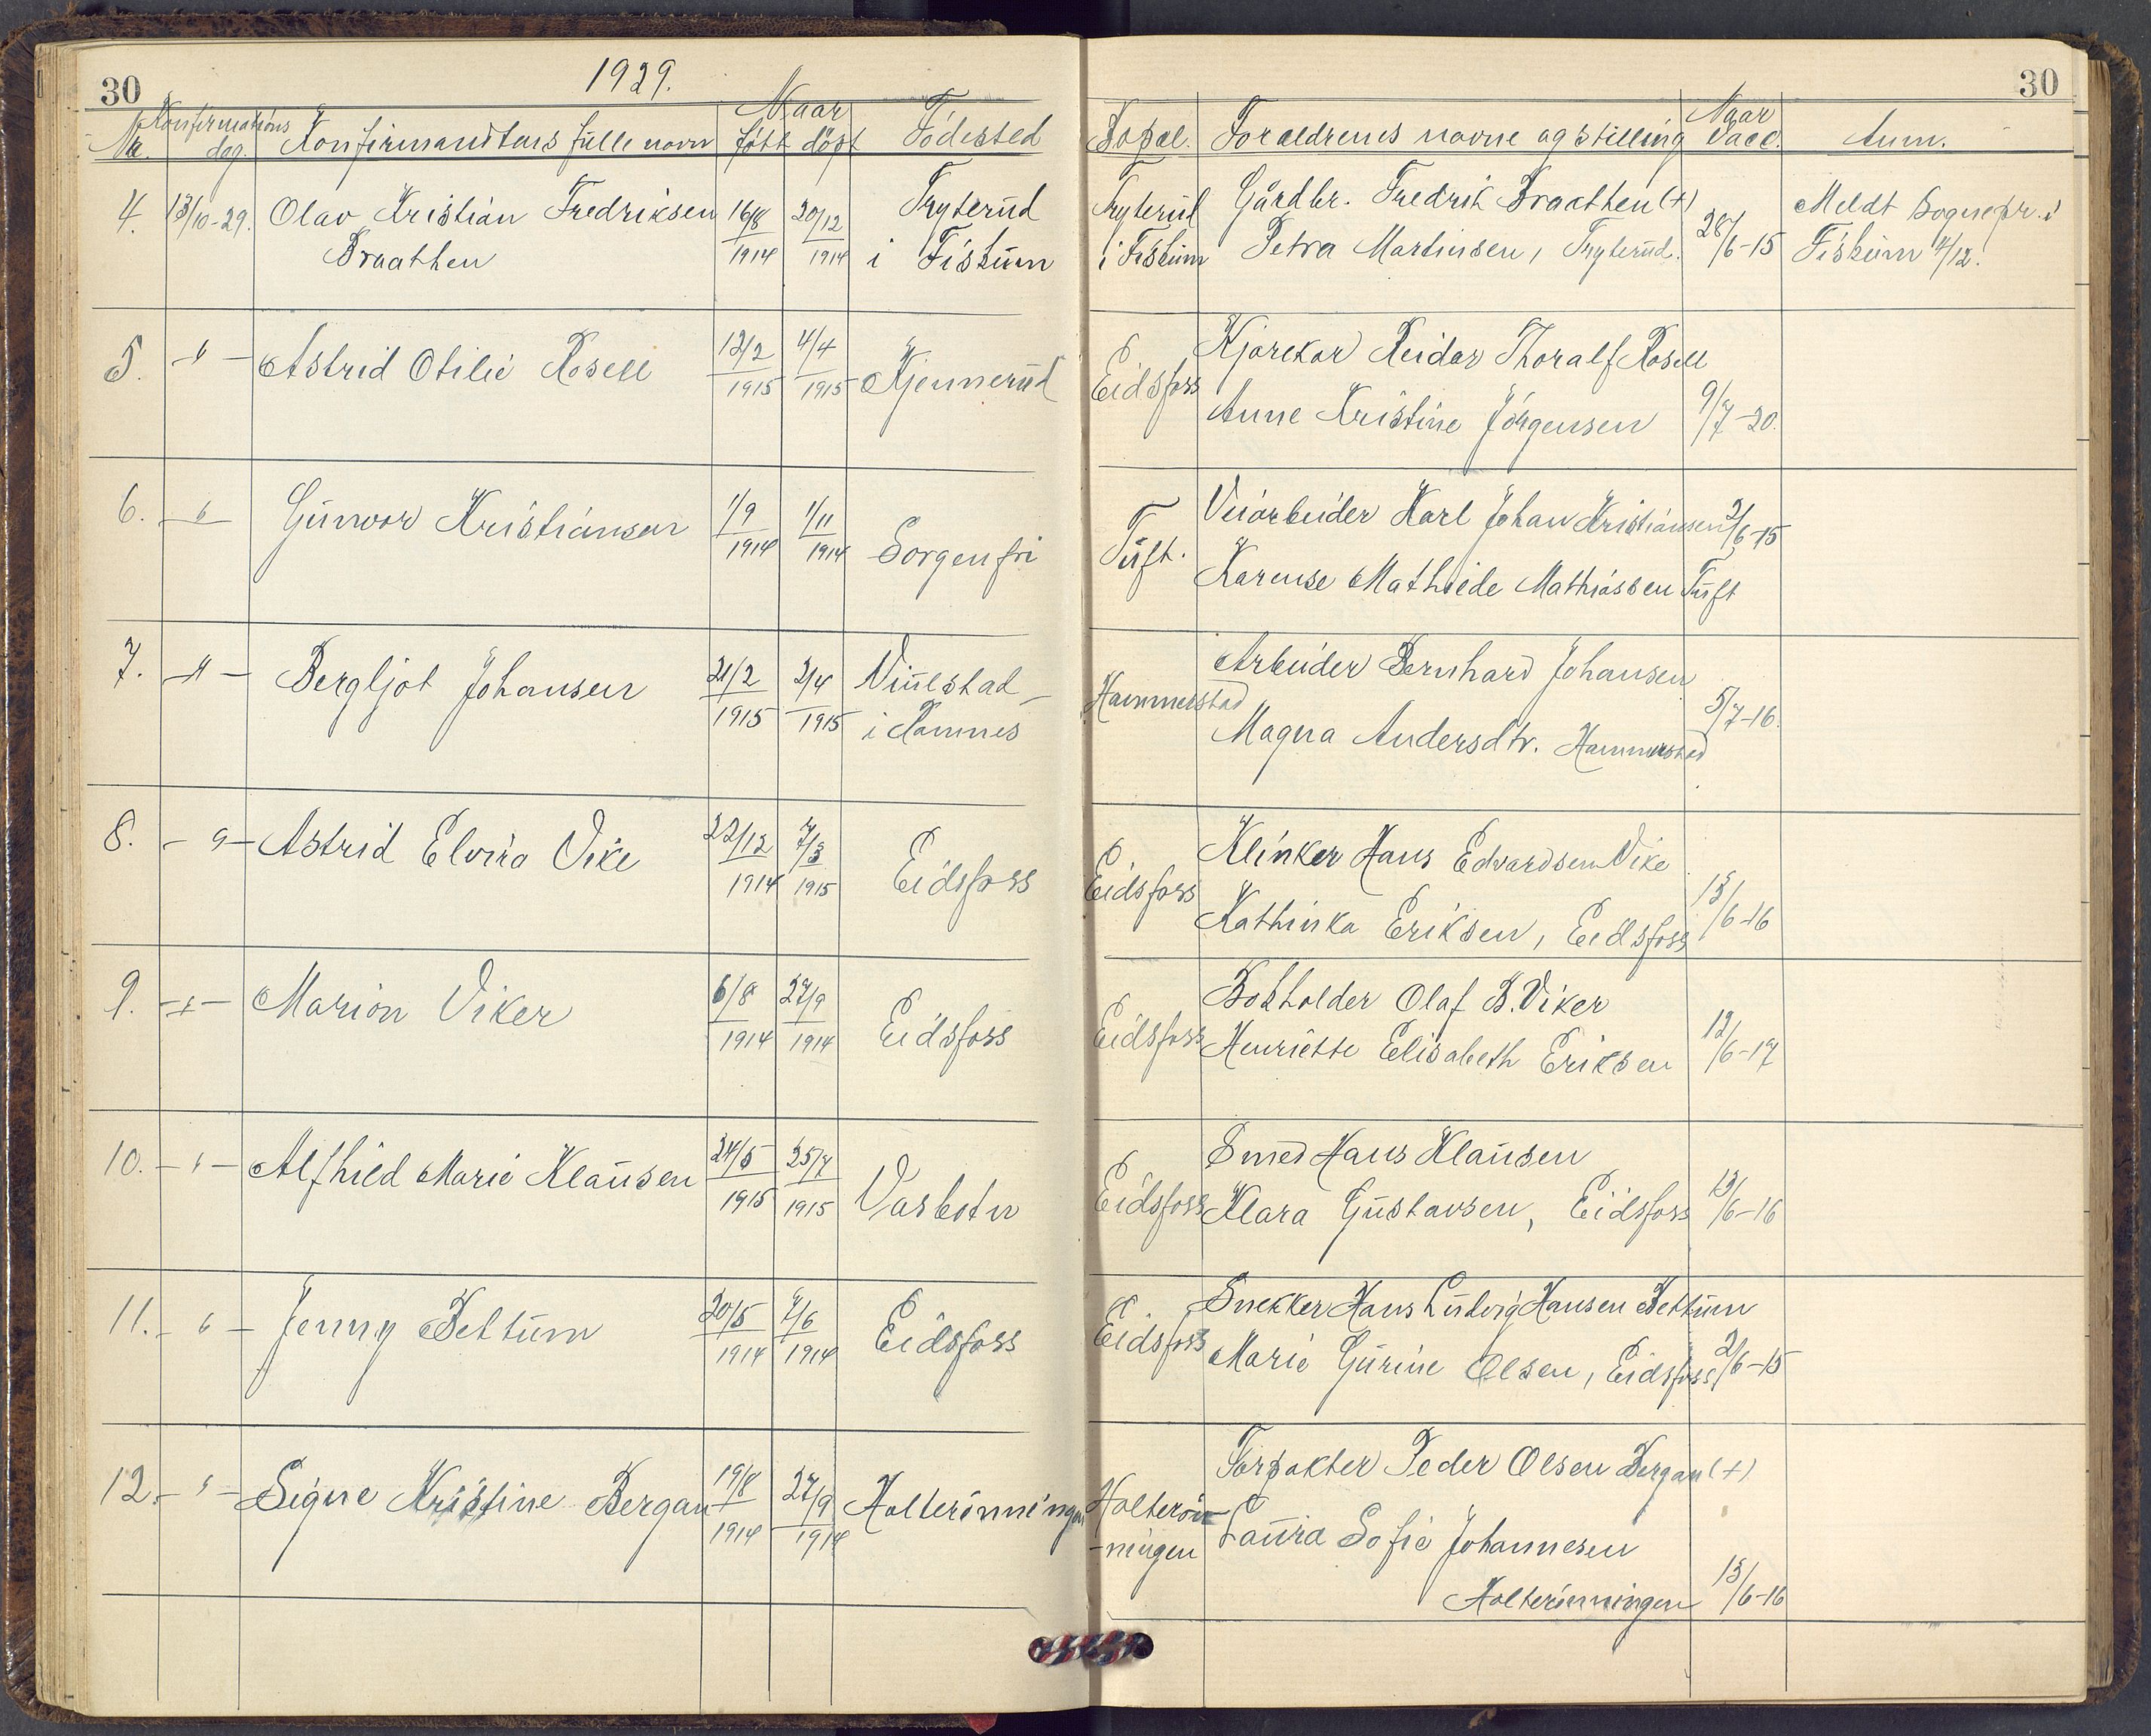 30
1929.
30
No. Konfirmations dag. Konfirmandens fulle navn Naar født døpt Födested
Bopæl. Foraeldrenes navne og stilling Naar Vacc. Anm.
4. 13/10-29. Olav Kristian Fredriksen 16/8 20/12 Tryterud
Braathen 1914 1914 i Fiskum
Tryterud Gårdbr. Fredrik Braathen (+) Meldt Sognepr. i
i Fiskum Petra Martinsen, Tryterud. 28/6-15 Fiskum 4/12.
5. -"- Astrid Otilie Rosell 12/2 4/4
1915 1915 Kjennerud
E. Kjörekar Reidar Thoralf Rosell
Eidsfoss Anne Kristine Jörgensen 9/7-20.
6. -"- Gunvor Kristiansen 1/9 1/11
1914 1914 Sorgenfri
Tuft. Veiarbeider Karl Johan Kristiansen 2/6-15
Karense Mathilde Mathiassen Tuft
7. -"- Bergljot Johansen 21/2 2/4 Vinelstad
1915 1915 i Ramnes
Hammerstad Arbeider Bernhard Johansen
Magna Andersdtr. Hammerstad 5/7-16.
8. -"- Astrid Elvira Vike 22/12 7/3
1914 1915 Eidsfoss
E. Klinker Hans Edvardsen Vike
Eidsfoss Kathinka Eriksen, Eidsfoss 13/6-16
9. -"- Marion Viker 6/8 27/9
1914 1914 Eidsfoss
Eidsfoss Bokholder Olaf B. Viker
Henriette Elisabeth Eriksen 12/6-17
10. -"- Alfhild Marie Klausen 24/5 25/7
1915 1915 Vasbotn
Eidsfoss Smed Hans Klausen
Klara Gustavsen, Eidsfoss 13/6-16
11. -"- Jenny Bettum 20/5 7/6
1914 1914 Eidsfoss
E. Snekker Hans Ludvig Hansen Bettum
Eidsfoss Marie Gurine Olsen, Eidsfoss 2/6-15
12. -"- Signe Kristine Bergan 19/8 27/9 Holterönningen
1914 1914
Holterön- Forpakter Peder Olsen Bergan (+)
-ningen Laura Sofie Johannesen
Holterönningen 13/6-16